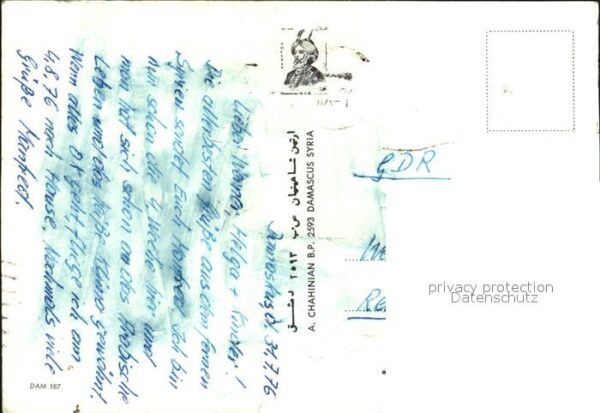 Damaskus, d. 31.7.76
Liebe Mama, Helga + Kinder!
Die allerbesten Grüße aus dem fernen
Syrien sendet Euch Manfred. Ich bin
nun schon die 4. Woche hier und
man hat sich schon an das arabische
Leben und das heiße Klima gewöhnt.
Wenn alles o.k. geht fliege ich am
4.8.76 nach Hause. Nochmals viele
Grüße Manfred.
DAM 187
ارتين شاهينيان ص.ب ٢٥٩٣ دمشق
A. CHAHINIAN B.P. 2593 DAMASCUS SYRIA
GDR
privacy protection
Datenschutz